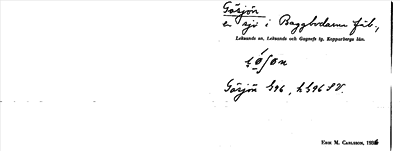 Gösjön
en sjö i Baggbodarna fäb.,
Leksands sn, Leksands och Gagnefs tg, Kopparbergs län.
Gösjön h96, LS96 SV.
ERIK M. CARLSSON, 1936